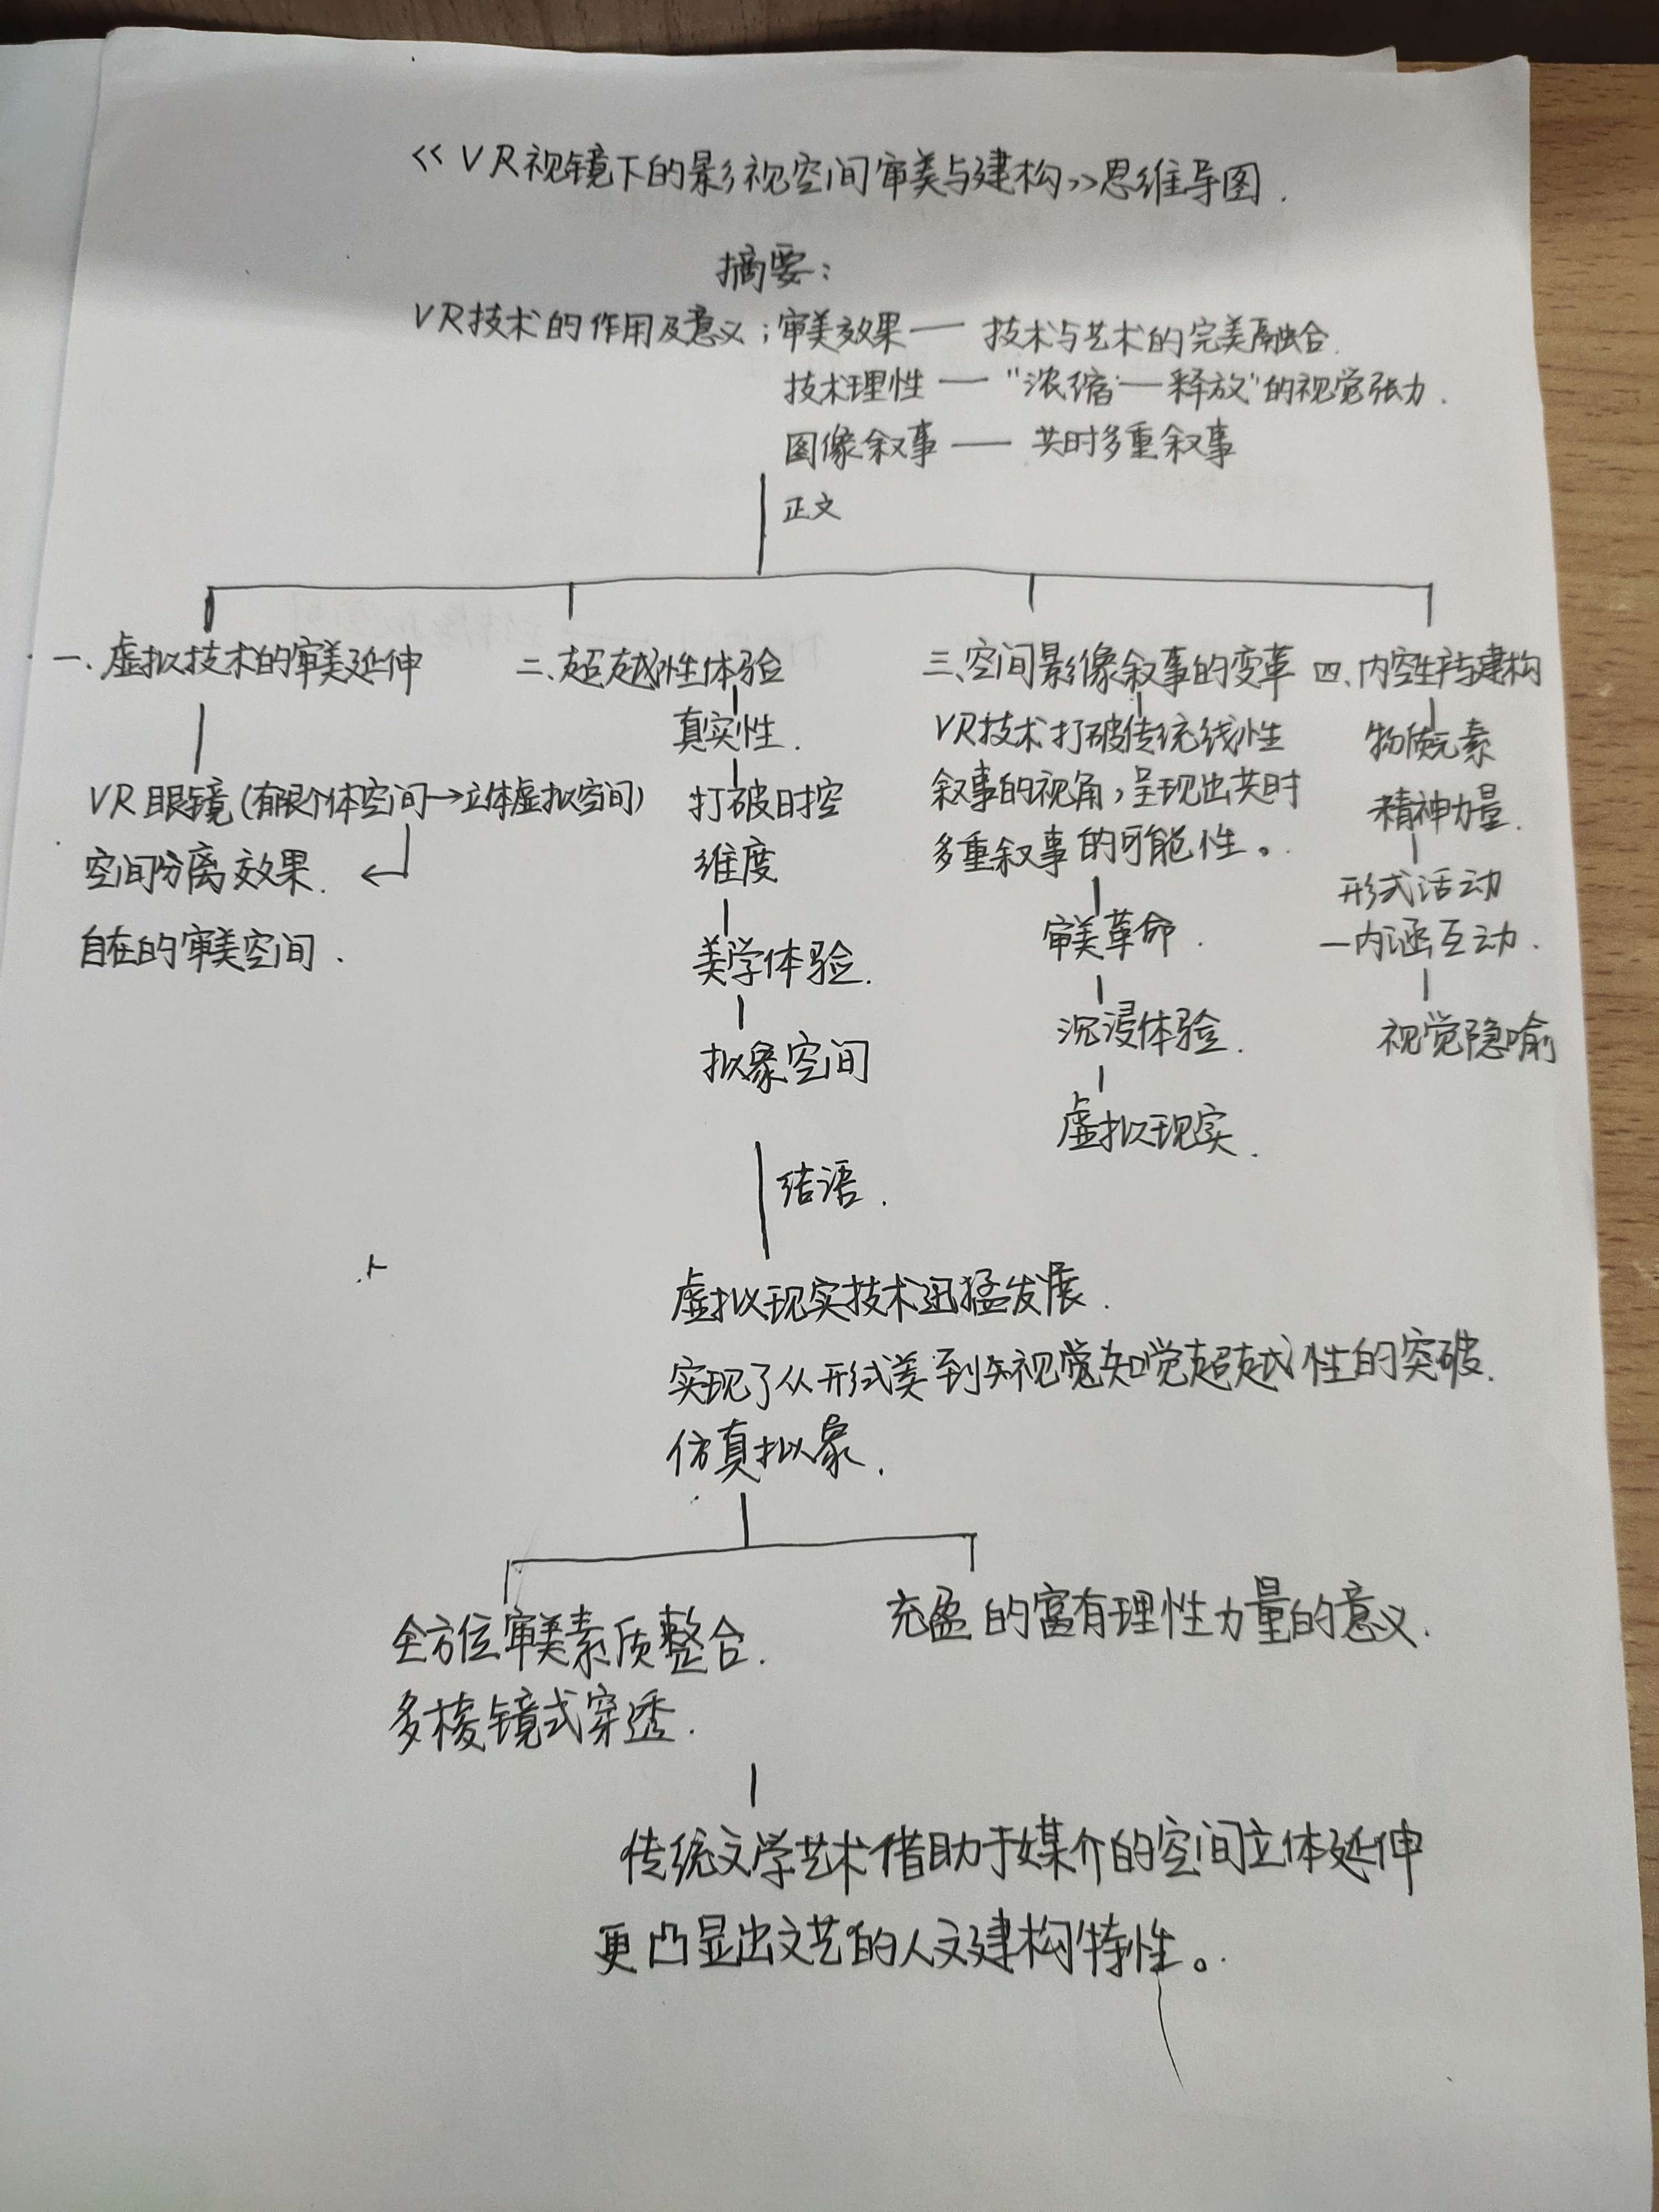 《VR视镜下的影视空间审美与建构》思维导图.
摘要:
VR技术的作用及意义;审美效果——技术与艺术的完美融合.
技术理性——"浓缩—释放"的视觉张力.
图像叙事——共时多重叙事
正文
一、虚拟技术的审美延伸
VR眼镜(有限个体空间→立体虚拟空间)
空间分离效果.
自在的审美空间.
二、超越性体验
真实性.
打破时空
维度
美学体验.
拟象空间
三、空间影像叙事的变革
VR技术打破传统线性
叙事的视角,呈现出共时
多重叙事的可能性。
审美革命.
沉浸体验.
虚拟现实.
四、内容生产与建构
物质元素
精神力量.
形式活动
—内涵互动.
视觉隐喻
结语.
虚拟现实技术迅猛发展.
实现了从形式美到视觉知觉超越性的突破.
仿真拟象.
全方位审美素质整合.
多棱镜式穿透.
充盈的富有理性力量的意义.
传统文学艺术借助于媒介的空间立体延伸
更凸显出文艺的人文建构特性。